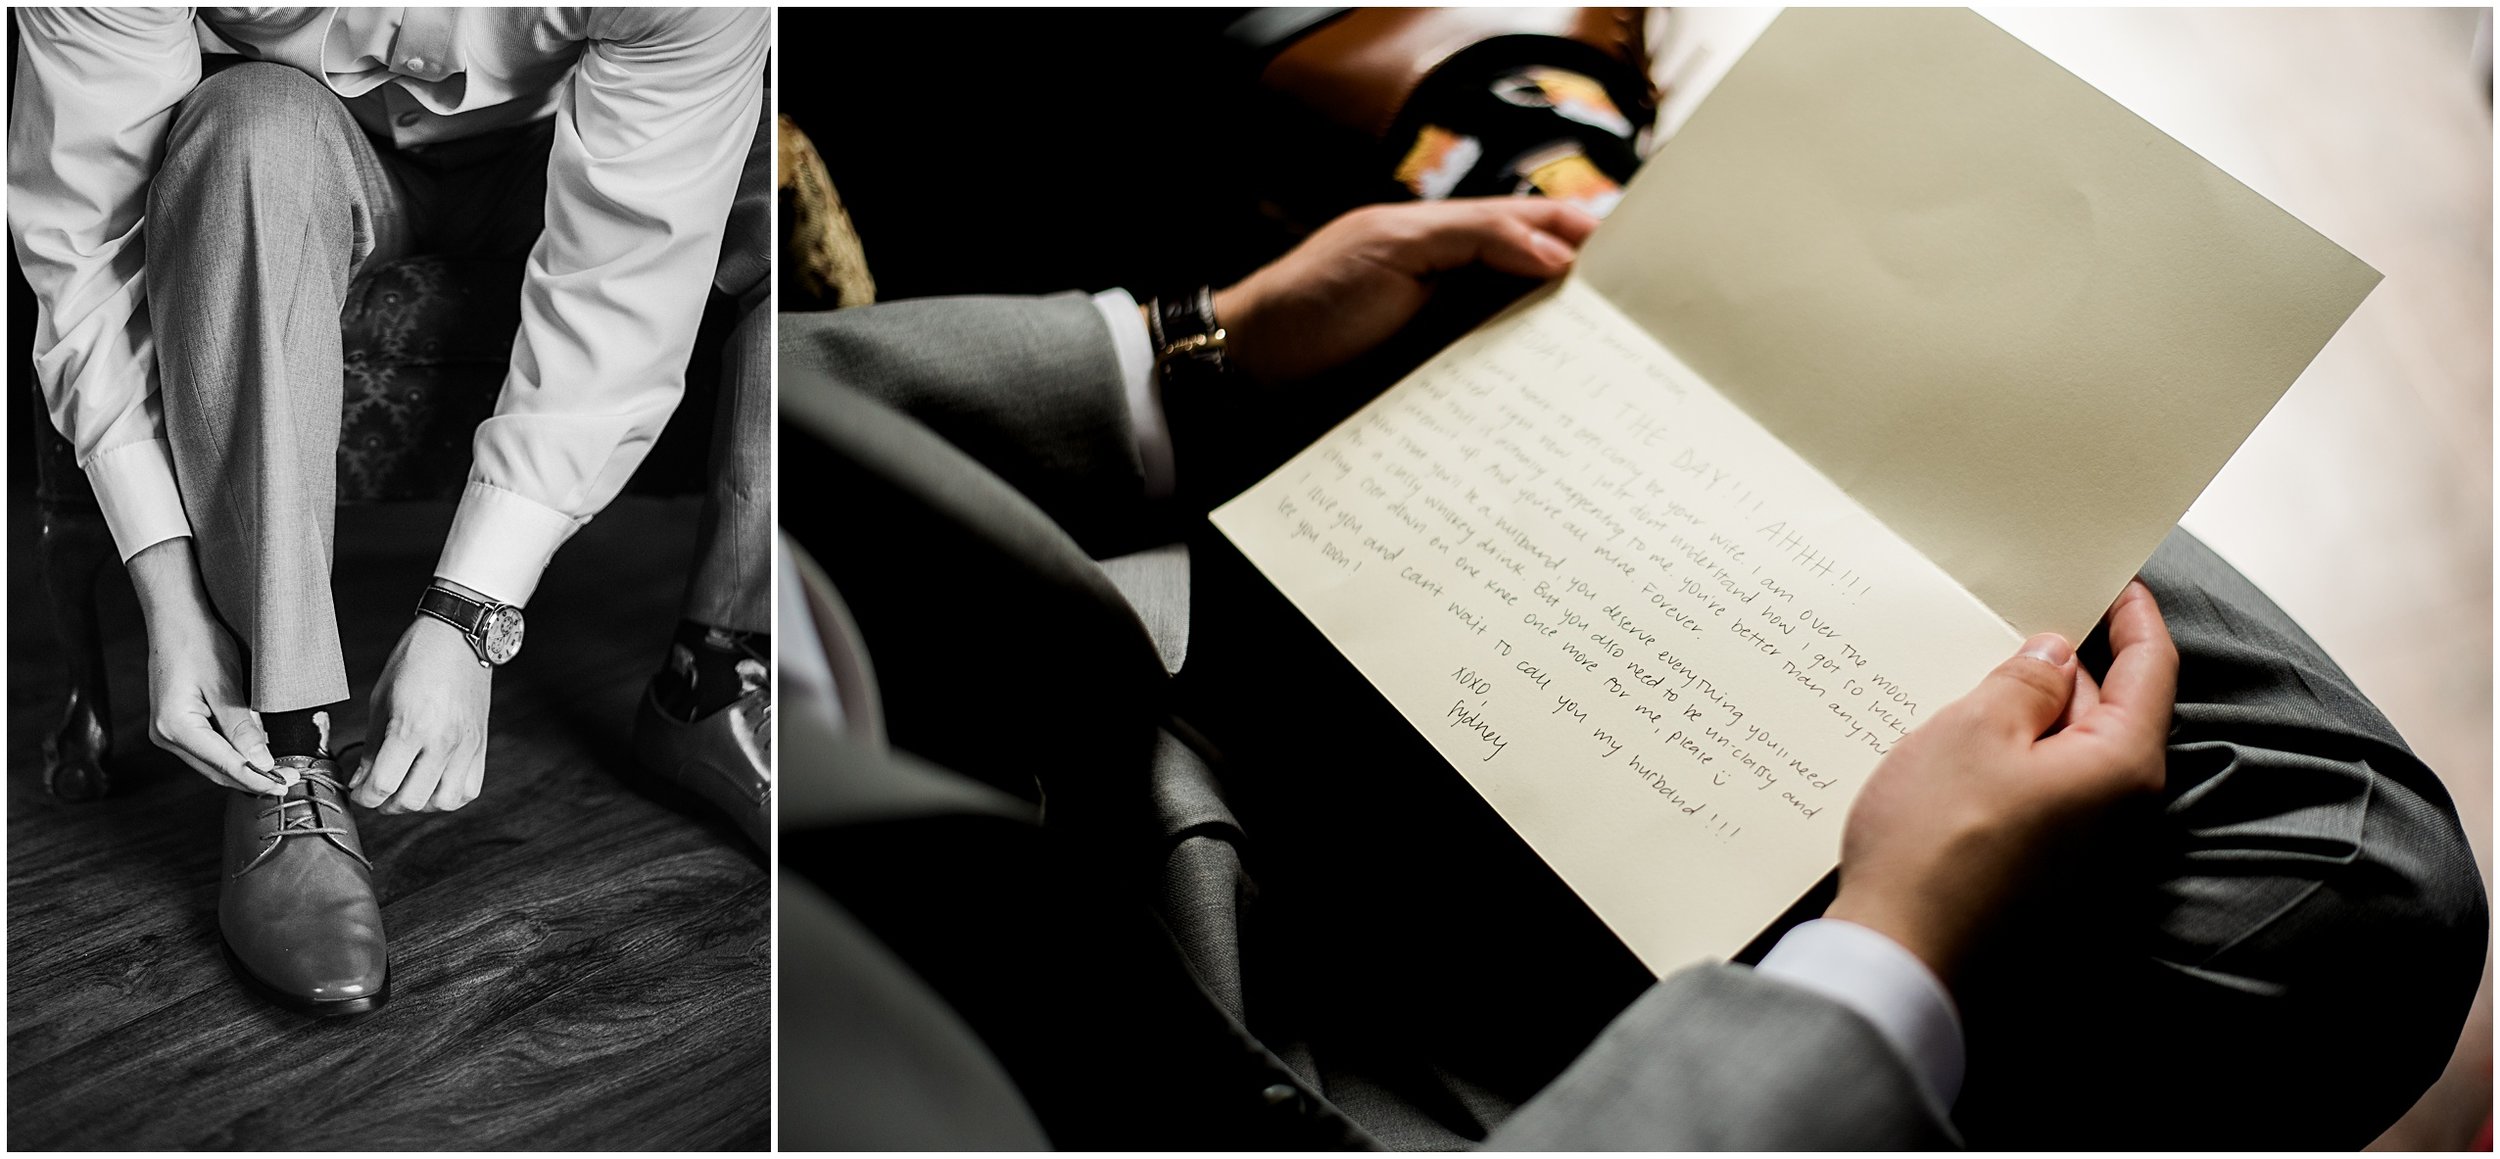 TODAY IS THE DAY!!! AHHH!!!
I can't wait to officially be your wife. I am over the moon
excited right now. I just don't understand how I got so lucky
and this is actually happening to me. you're better than anything
I dreamt up and you're all mine. Forever.
Now that you'll be a husband, you deserve everything you'll need
for a classy whiskey drink. But you also need to be un-classy and
chug one down on one knee once more for me, please
I love you and can't wait to call you my husband!!!
see you soon!
xoxo,
Sydney